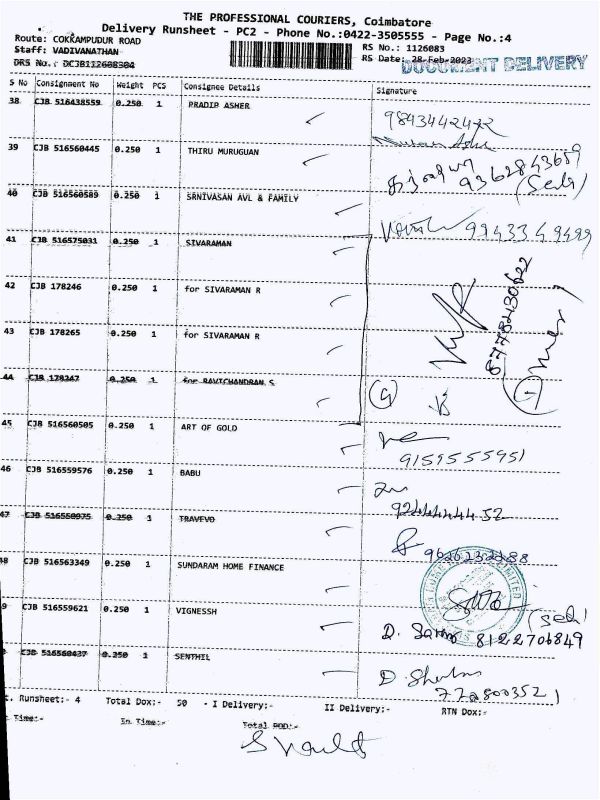 THE PROFESSIONAL COURIERS, Coimbatore
Delivery Runsheet - PC2 - Phone No.:0422-3505555 - Page No.:4
Route: COKKAMPUDUR ROAD
RS No.: 1126083
Staff: VADIVANATHAN
RS Date: 28-Feb-2023
DOCUMENT DELIVERY
DRS No.: DCJB112608304
S No Consignment No Weight PCS Consignee Details Signature
38 CJB 516438559 0.250 1 PRADIP ASHER
9843442472
39 CJB 516560445 0.250 1 THIRU MURUGUAN
9362843659
40 CJB 516560589 0.250 1 SRNIVASAN AVL & FAMILY
9943349499
41 CJB 516575031 0.250 1 SIVARAMAN
42 CJB 178246 0.250 1 for SIVARAMAN R
8778430622
43 CJB 178265 0.250 1 for SIVARAMAN R
44 CJB 178247 0.250 1 for RAVICHANDRAN S
45 CJB 516560505 0.250 1 ART OF GOLD
9159555951
46 CJB 516559576 0.250 1 BABU
9244444452
47 CJB 516550975 0.250 1 TRAVEVO
9626232288
48 CJB 516563349 0.250 1 SUNDARAM HOME FINANCE
9 CJB 516559621 0.250 1 VIGNESSH
8122706849
CJB 516560437 0.250 1 SENTHIL
Runsheet:- 4 Total Dox:- 50 - I Delivery:- II Delivery:- RTN Dox:-
Time:- En Time:- Total POD:-